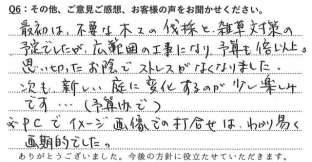 Q6：その他、ご意見ご感想、お客様の声をお聞かせください。
最初は、不要な木々の伐採と、雑草対策の
予定でしたが、広範囲の工事になり予算も倍以上。
思い切ったお陰でストレスがなくなりました。
次も、新しい庭に変化するのが少し楽しみ
です…(予算内で)
※PCでイメージ画像での打合せは、わかり易く
画期的でした。
ありがとうございました。今後の方針に役立たせていただきます。